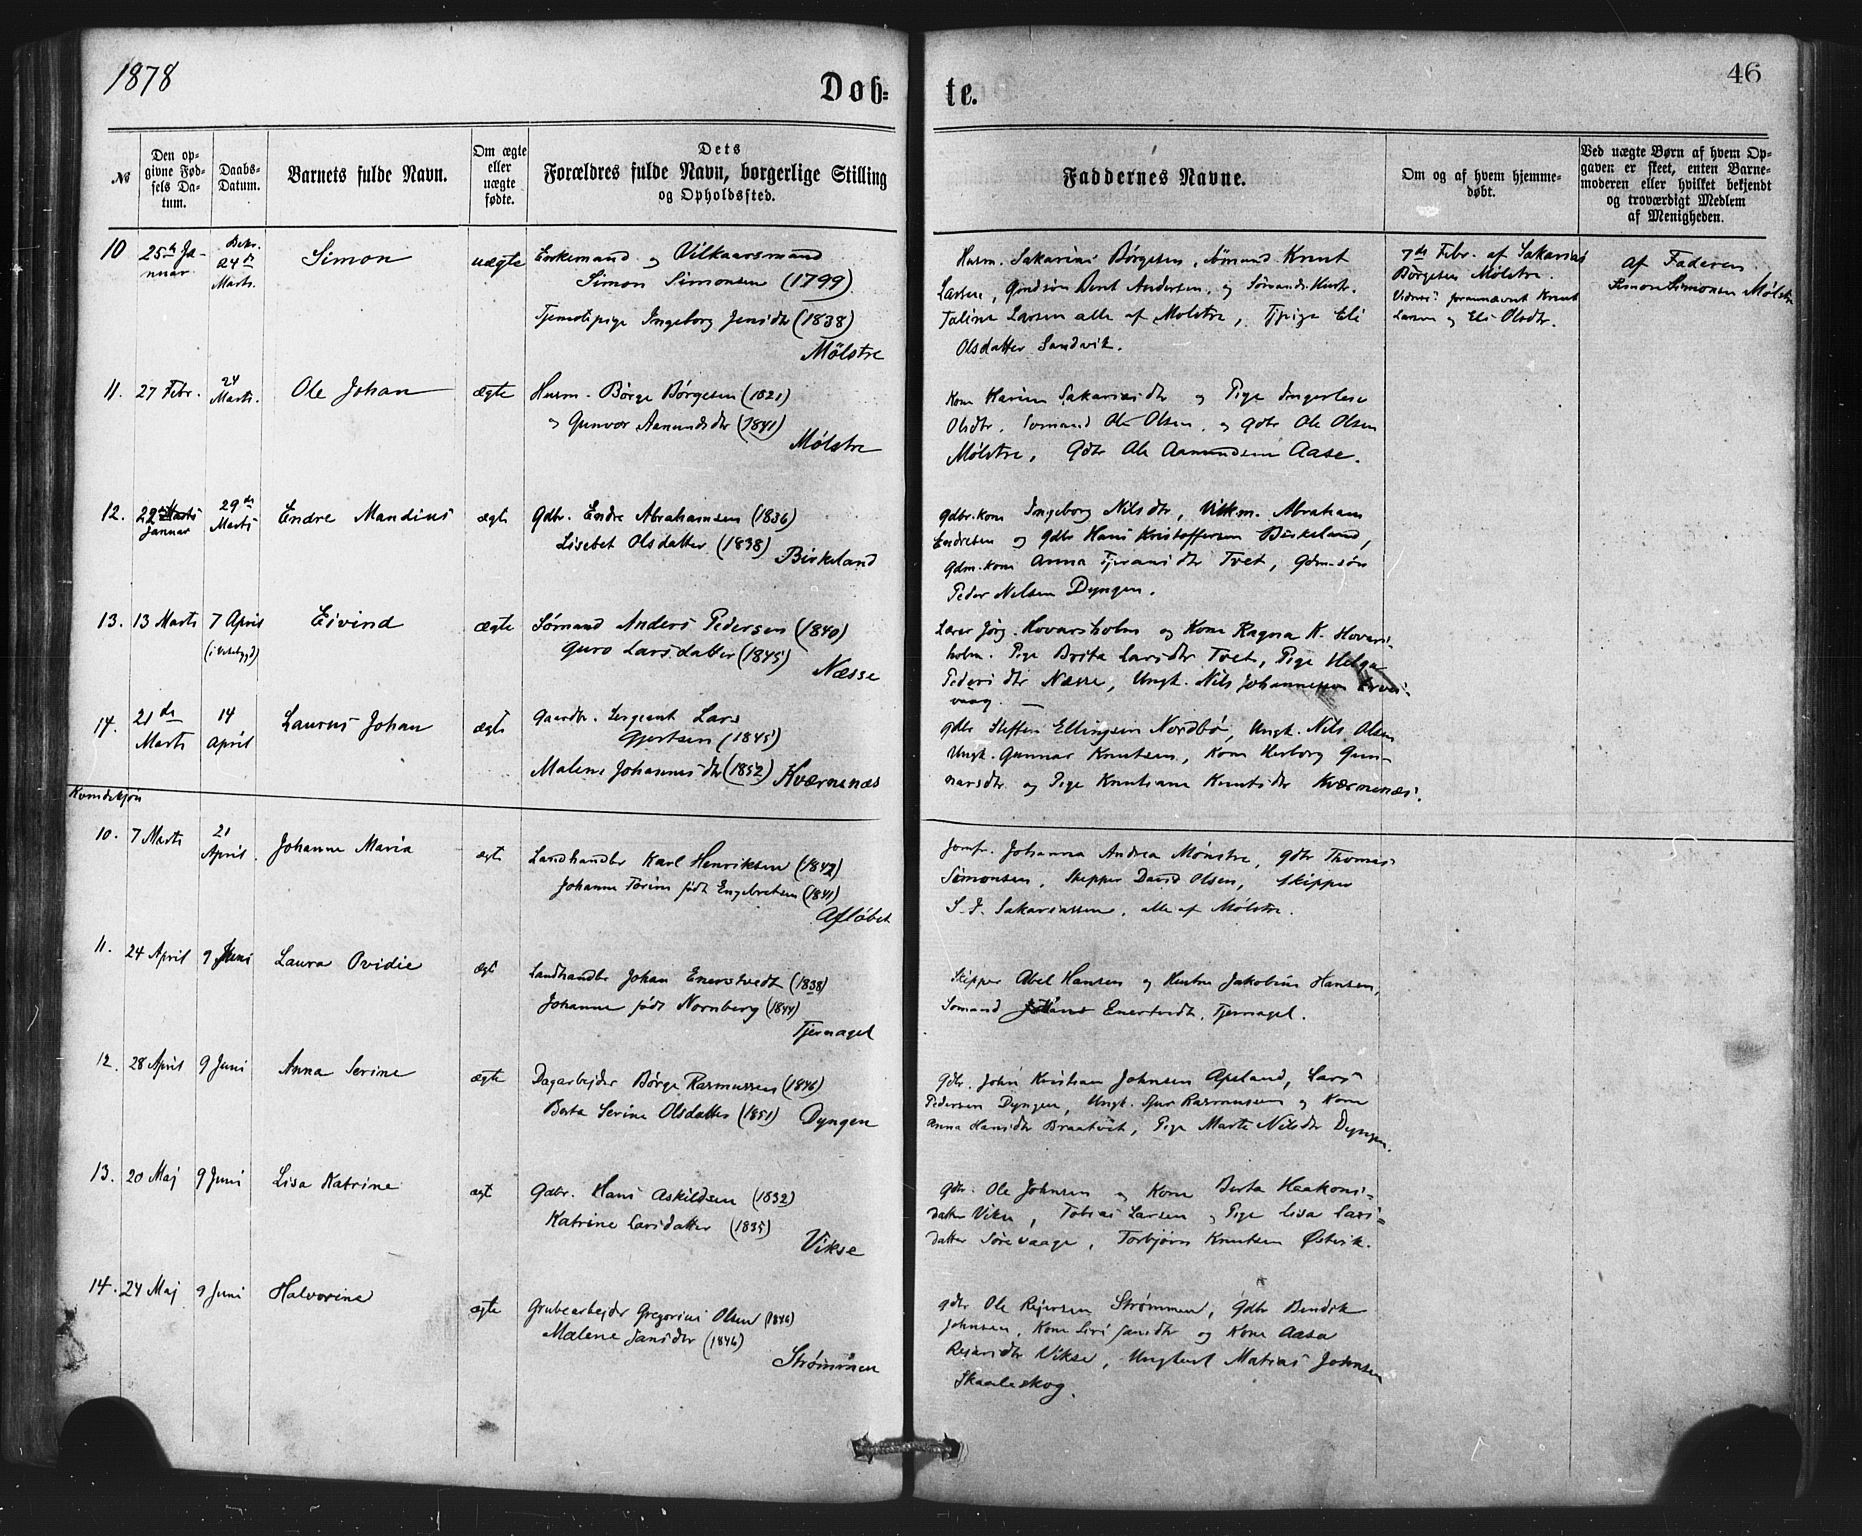 1878
Døb=
te.
46
No
Den opgivne Fødsels Datum.
Daabs-Datum.
Barnets fulde Navn.
Om ægte eller uægte fødte.
Dets
Forældres fulde Navn, borgerlige Stilling
og Opholdssted.
Faddernes Navne.
Om og af hvem hjemmedøbt.
Ved uægte Børn af hvem Opgaven er skeet, enten Barnemoderen eller hvilket bekjendt og troværdigt Medlem af Menigheden.
10 25de Januar Bekr. 24de Marts. Simon uægte Enkemand og Vilkaarsmand
Simon Simonsen (1799)
Tjenestepige Ingeborg Jensdtr (1838)
Mølstre
Husm. Sakarias Børgesen, Sømand Knut
Larsen, Andersen, og Sømands Hustr.
Taline Larsen alle af Mølstre, Tjpige Eli
Olsdatter Sandvik.
7de Febr. af Sakarias
Børgesen Mølstre.
Vidner: forannævnt Knut
Larsen og Eli Olsdtr.
Af Faderen
Simon Simonsen Mølstre
11. 27 Febr. 24 Marts. Ole Johan ægte Husm. Børge Børgesen (1821)
og Gunvor Aamundsdtr (1841)
Mølstre
Kone Karina Sakariasdtr og Pige Ingerlise
Olsdtr. Sømand Ole Olsen, og Gdbr Ole Olsen
Mølstre, Gdbr Ole Aamundsen Aase.
12. 22 Marts Januar 29de Marts Endre Mandius ægte Gdbr. Endre Abrahamsen (1836)
Lisebet Olsdatter (1838)
Birkeland
Gdbr.kone Ingeborg Nilsdtr, Vilkm. Abraham
Endresen og Gdbr Hans Kristoffersen Birkeland,
Gdm.kone Anna Tvet, Gdm.søn
Peder Nelsen Dyngen.
13. 13 Marts 7 April Eivind ægte Sømand Anders Pedersen (1840)
Guro Larsdatter (1845)
Næsse
Lærer Jørg. Hovarsholm og Kone Ragna K. Hovars-
holm. Pige Brita Larsdtr Tvet, Pige Helga
Pedersdtr Næsse, Ungk. Nils Johannesen
vaag.
14. 21de Marts 14 April Laurus Johan ægte Gaardbr. Sergeant Lars
Gjertsen (1845)
Malene Johannesdtr (1852) Kværnenæs
Gdbr Steffen Ellingsen Nordbø, Ungk. Nils Olsen
Ungk. Gunnar Knutsen, Kone Herborg Gun-
narsdtr og Pige Knutsdtr Kværnenæs.
Kvindekjøn
10. 7 Marts 21 April. Johanne Maria ægte Landhandler Karl Henriksen (1842)
Johanne Torine født Engebretsen (1841)
Afløbet
Jomfr. Johanna Andrea Mønstre, Gdbr Thomas
Simonsen, Skipper David Olsen, Skipper
S. J. Sakariassen, alle af Mølstre.
11. 24 April 9 Juni Laura Ovidie ægte Landhandler Johan Enerstvedt (1838)
Johanne født Nornberg (1844)
Tjernagel
Skipper Abel Hansen og Hustru Jakobine Hansen,
Sømand Johans Enerstvedt, Tjernagel.
12. 28 April 9 Juni Anna Serine ægte Dagarbejder Børge Rasmussen (1846)
Berta Serine Olsdatter (1851) Dyngen
Gdbr. John Kristian Johnsen Apeland, Lars
Pedersen Dyngen, Ungk. Rasmussen og Kone
Anna Hansdtr Braatvet, Pige Marte Nilsdtr Dyngen.
13. 20 Maj 9 Juni Lisa Katrine ægt Gdbr. Hans Askildsen (1832)
Katrine Larsdatter (1835)
Vikse
Gdbr. Ole Johnsen og Kone Berta Haakons-
datter Vikse, Tobias Larsen og Pige Lisa Lars-
datter Sørevaage, Torbjørn Knutsen Østvik.
14. 24 Maj 9 Juni Halvorine ægte Grubearbejder Gregorius Olsen (1846)
Malene Jansdtr (1846)
Strømmen
Gdbr Ole Rejersen Strømmen, Gdbr Bendik
Johnsen, Kone Siri Jansdtr og Kone Aasa
Rejersdtr Vikse, Ungkarl Matias Johnsen
Skaaleskog.